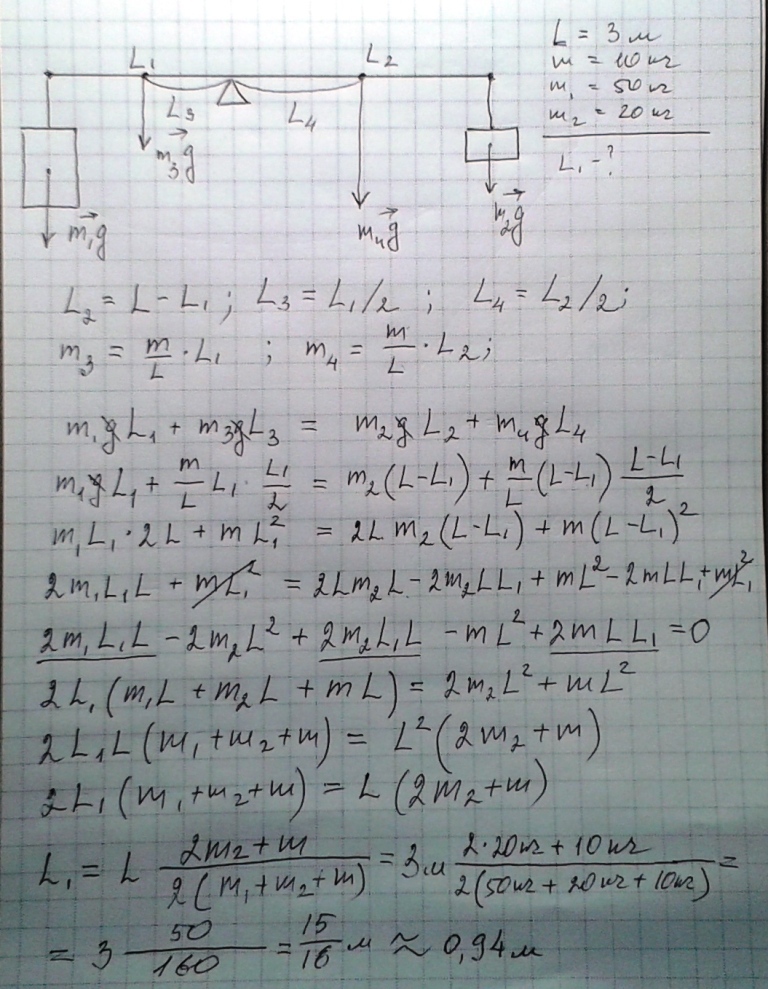 L = 3 м
m = 10 кг
m₁ = 50 кг
m₂ = 20 кг
L₁ - ?
L₁ L₂
L₃ L₄
m₃g⃗
m₁g⃗ m₄g⃗ m₂g⃗
L₂ = L - L₁ ; L₃ = L₁/2 ; L₄ = L₂/2 ;
m₃ = m/L · L₁ ; m₄ = m/L · L₂ ;
m₁gL₁ + m₃gL₃ = m₂gL₂ + m₄gL₄
m₁gL₁ + m/L L₁ · L₁/2 = m₂(L-L₁) + m/L (L-L₁) L-L₁/2
m₁L₁·2L + mL₁² = 2Lm₂(L-L₁) + m(L-L₁)²
2m₁L₁L + mL₁² = 2Lm₂L - 2m₂LL₁ + mL² - 2mLL₁ + mL₁²
2m₁L₁L - 2m₂L² + 2m₂L₁L - mL² + 2mLL₁ = 0
2L₁(m₁L + m₂L + mL) = 2m₂L² + mL²
2L₁L(m₁+m₂+m) = L²(2m₂+m)
2L₁(m₁+m₂+m) = L(2m₂+m)
L₁ = L 2m₂+m/2(m₁+m₂+m) = 3м 2·20кг + 10кг/2(50кг + 20кг + 10кг) =
= 3 50/160 = 15/16 м ≈ 0,94 м